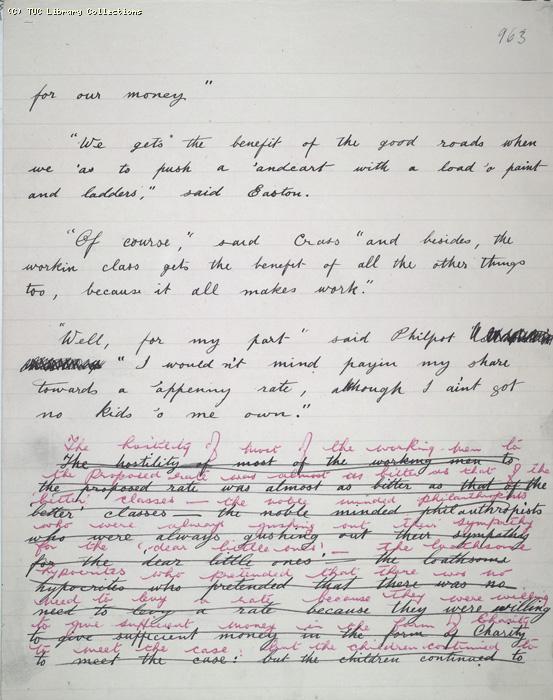 (C) TUC Library Collections
963
for our money"
"We gets the benefit of the good roads when
we 'as to push a 'andcart with a load 'o paint
and ladders," said Easton.
"Of course," said Crass "and besides, the
workin class gets the benefit of all the other things
too, because it all makes work."
"Well, for my part" said Philpot
"I would n't mind payin my share
towards a 'appenny rate, although I aint got
no kids 'o me own."
The hostility of most of the working-men to
The hostility of most of the working men to
the proposed rate was almost as bitter as that of the
the proposed rate was almost as bitter as that of the
'better' classes – the noble minded philanthropists
better' classes – the noble minded philanthropists
who were always gushing out their sympathy
who were always gushing out their sympathy
for the 'dear little ones' – the loathsome
for the dear little ones' – the loathsome
hypocrites who pretended that there was no
hypocrites who pretended that there was no
need to levy a rate because they were willing
need to levy a rate because they were willing
to give sufficient money in the form of Charity
to give sufficient money in the form of Charity
to meet the case: but the children continued to
to meet the case: but the children continued to